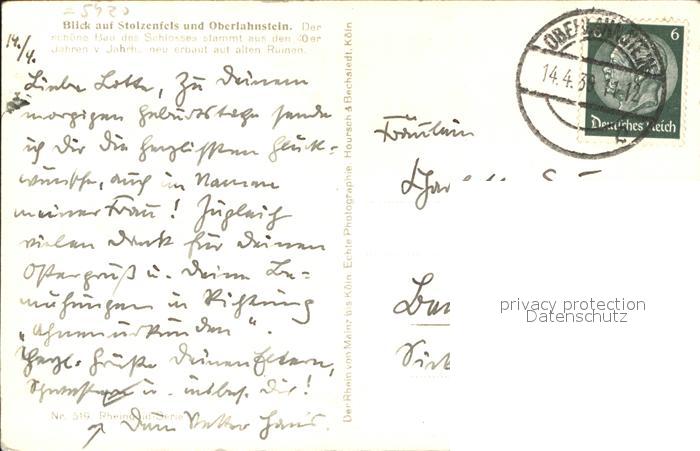 = 5920
Blick auf Stolzenfels und Oberlahnstein. Der
schöne Bau des Schlosses stammt aus den 40er
Jahren v. Jahrh. neu erbaut auf alten Ruinen.
14./4.
Liebe Lotte, zu Deinem
morgigen Geburtstage sende
ich Dir die herzlichsten Glück-
wünsche, auch im Namen
meiner Frau! Zugleich
vielen Dank für Deinen
Ostergruß u. Deine Be-
mühungen in Richtung
„Ahnenurkunden".
Herzl. Grüße Deinen Eltern,
u. insbes. Dir!
Nr. 519. Rheingold-Serie
Dein Vetter Hans.
Der Rhein von Mainz bis Köln. Echte Photographie. Hoursch & Bechstedt, Köln
OBERLAHNSTEIN
14.4.38
6
Deutsches Reich
Fräulein
privacy protection
Datenschutz